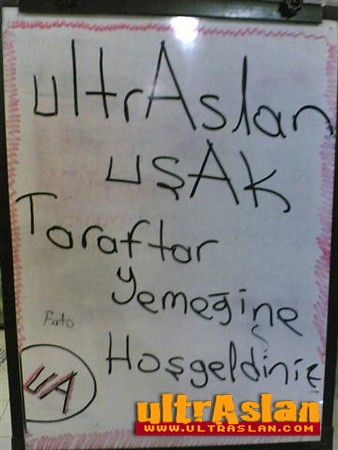 ultrAslan
uşAk
Taraftar
yemeğine
Fato
Hoşgeldiniz
UA
ultrAslan
WWW.ULTRASLAN.COM